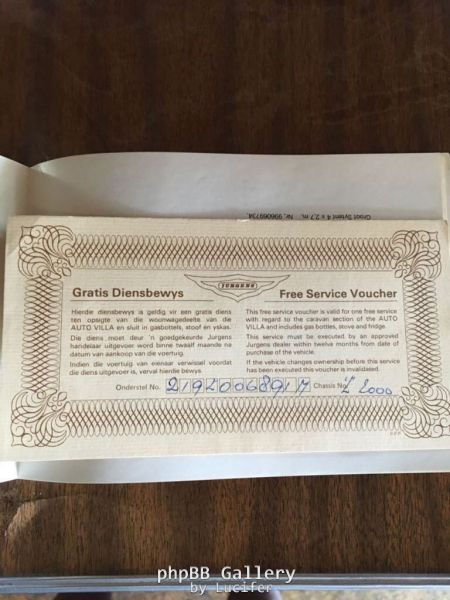 Groot Sytent 4 x 2,7 m. Nr. 996069734.
JURGENS
Gratis Diensbewys
Hierdie diensbewys is geldig vir een gratis diens
ten opsigte van die woonwagedeelte van die
AUTO VILLA en sluit in gasbottels, stoof en yskas.
Die diens moet deur 'n goedgekeurde Jurgens
handelaar uitgevoer word binne twaalf maande na
datum van aankoop van die voertuig.
Indien die voertuig van eienaar verwissel voordat
die diens uitgevoer is, verval hierdie bewys.
Free Service Voucher
This free service voucher is valid for one free service
with regard to the caravan section of the AUTO
VILLA and includes gas bottles, stove and fridge.
This service must be executed by an approved
Jurgens dealer within twelve months from date of
purchase of the vehicle.
If the vehicle changes ownership before this service
has been executed this voucher is invalidated.
Onderstel No. 21920068917 Chassis No. L 2000
phpBB Gallery
by Lucifer